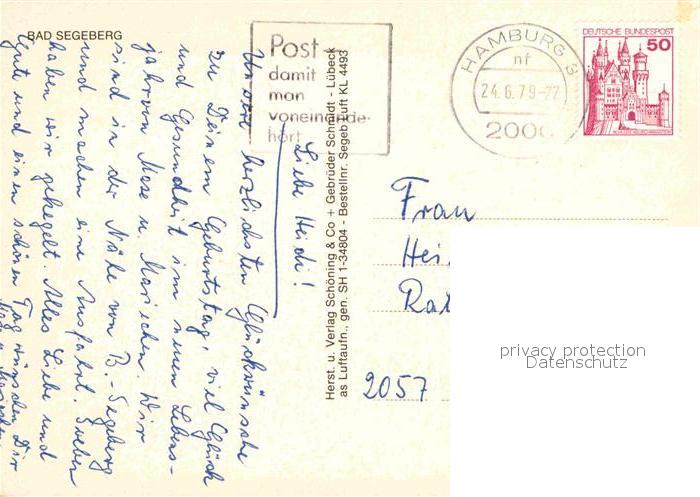 BAD SEGEBERG
Post -
damit
man
voneinander
hört
HAMBURG 3
nf
24.6.79-22
2000
DEUTSCHE BUNDESPOST
50
Liebe Heidi!
Unsere herzlichsten Glückwünsche
zu Deinem Geburtstag, viel Glück
und Gesundheit im neuen Lebens-
jahr von Mose u. Marichen. Wir
sind in der Nähe von B.-Segeberg
und machen eine Ausfahrt. Soeben
haben wir gekegelt. Alles Liebe und
Gute und einen schönen Tag wünschen Dir
Herst. u. Verlag Schöning & Co + Gebrüder Schmidt - Lübeck
as Luftaufn., gen. SH 1-34804 - Bestellnr. Segeb Luft KL 4493
Frau
Hei
Rat
2057
privacy protection
Datenschutz